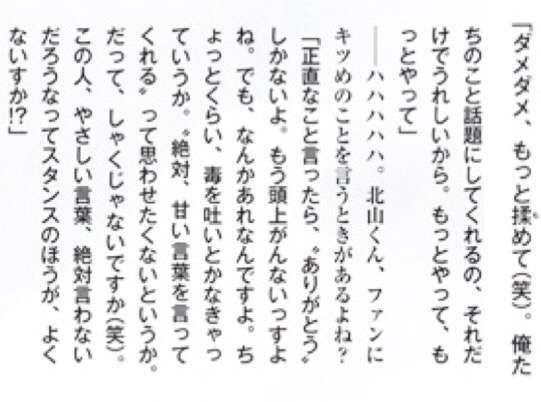 「ダメダメ、もっと揉めて(笑)。俺た
ちのこと話題にしてくれるの、それだ
けでうれしいから。もっとやって、も
っとやって」
──ハハハハハ。北山くん、ファンに
キツめのことを言うときがあるよね?
「正直なこと言ったら、〝ありがとう〟
しかないよ。もう頭上がんないっすよ
ね。でも、なんかあれなんですよ。ち
ょっとくらい、毒を吐いとかなきゃっ
ていうか。〝絶対、甘い言葉を言って
くれる〟って思わせたくないというか。
だって、しゃくじゃないですか(笑)。
この人、やさしい言葉、絶対言わない
だろうなってスタンスのほうが、よく
ないすか!?」